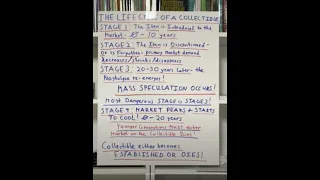 THE LIFECYCLE OF A COLLECTIBLE
STAGE 1. The Item is Introduced to the
Market - 0 - 10 years
STAGE 2. The Item is Discontinued -
Or is Forgotten - primary Market demand
Decreases/Shrinks/disappears
STAGE 3. 20-30 years later - the
Nostalgia re-energes!
MASS SPECULATION OCCURS!
Most Dangerous STAGE is STAGE 3!
STAGE 4. MARKET PEAKS & STARTS
TO COOL! - 20 years.
Younger Generations must enter
Market or the Collectible Dies!
Collectible either becomes
ESTABLISHED OR DIES!